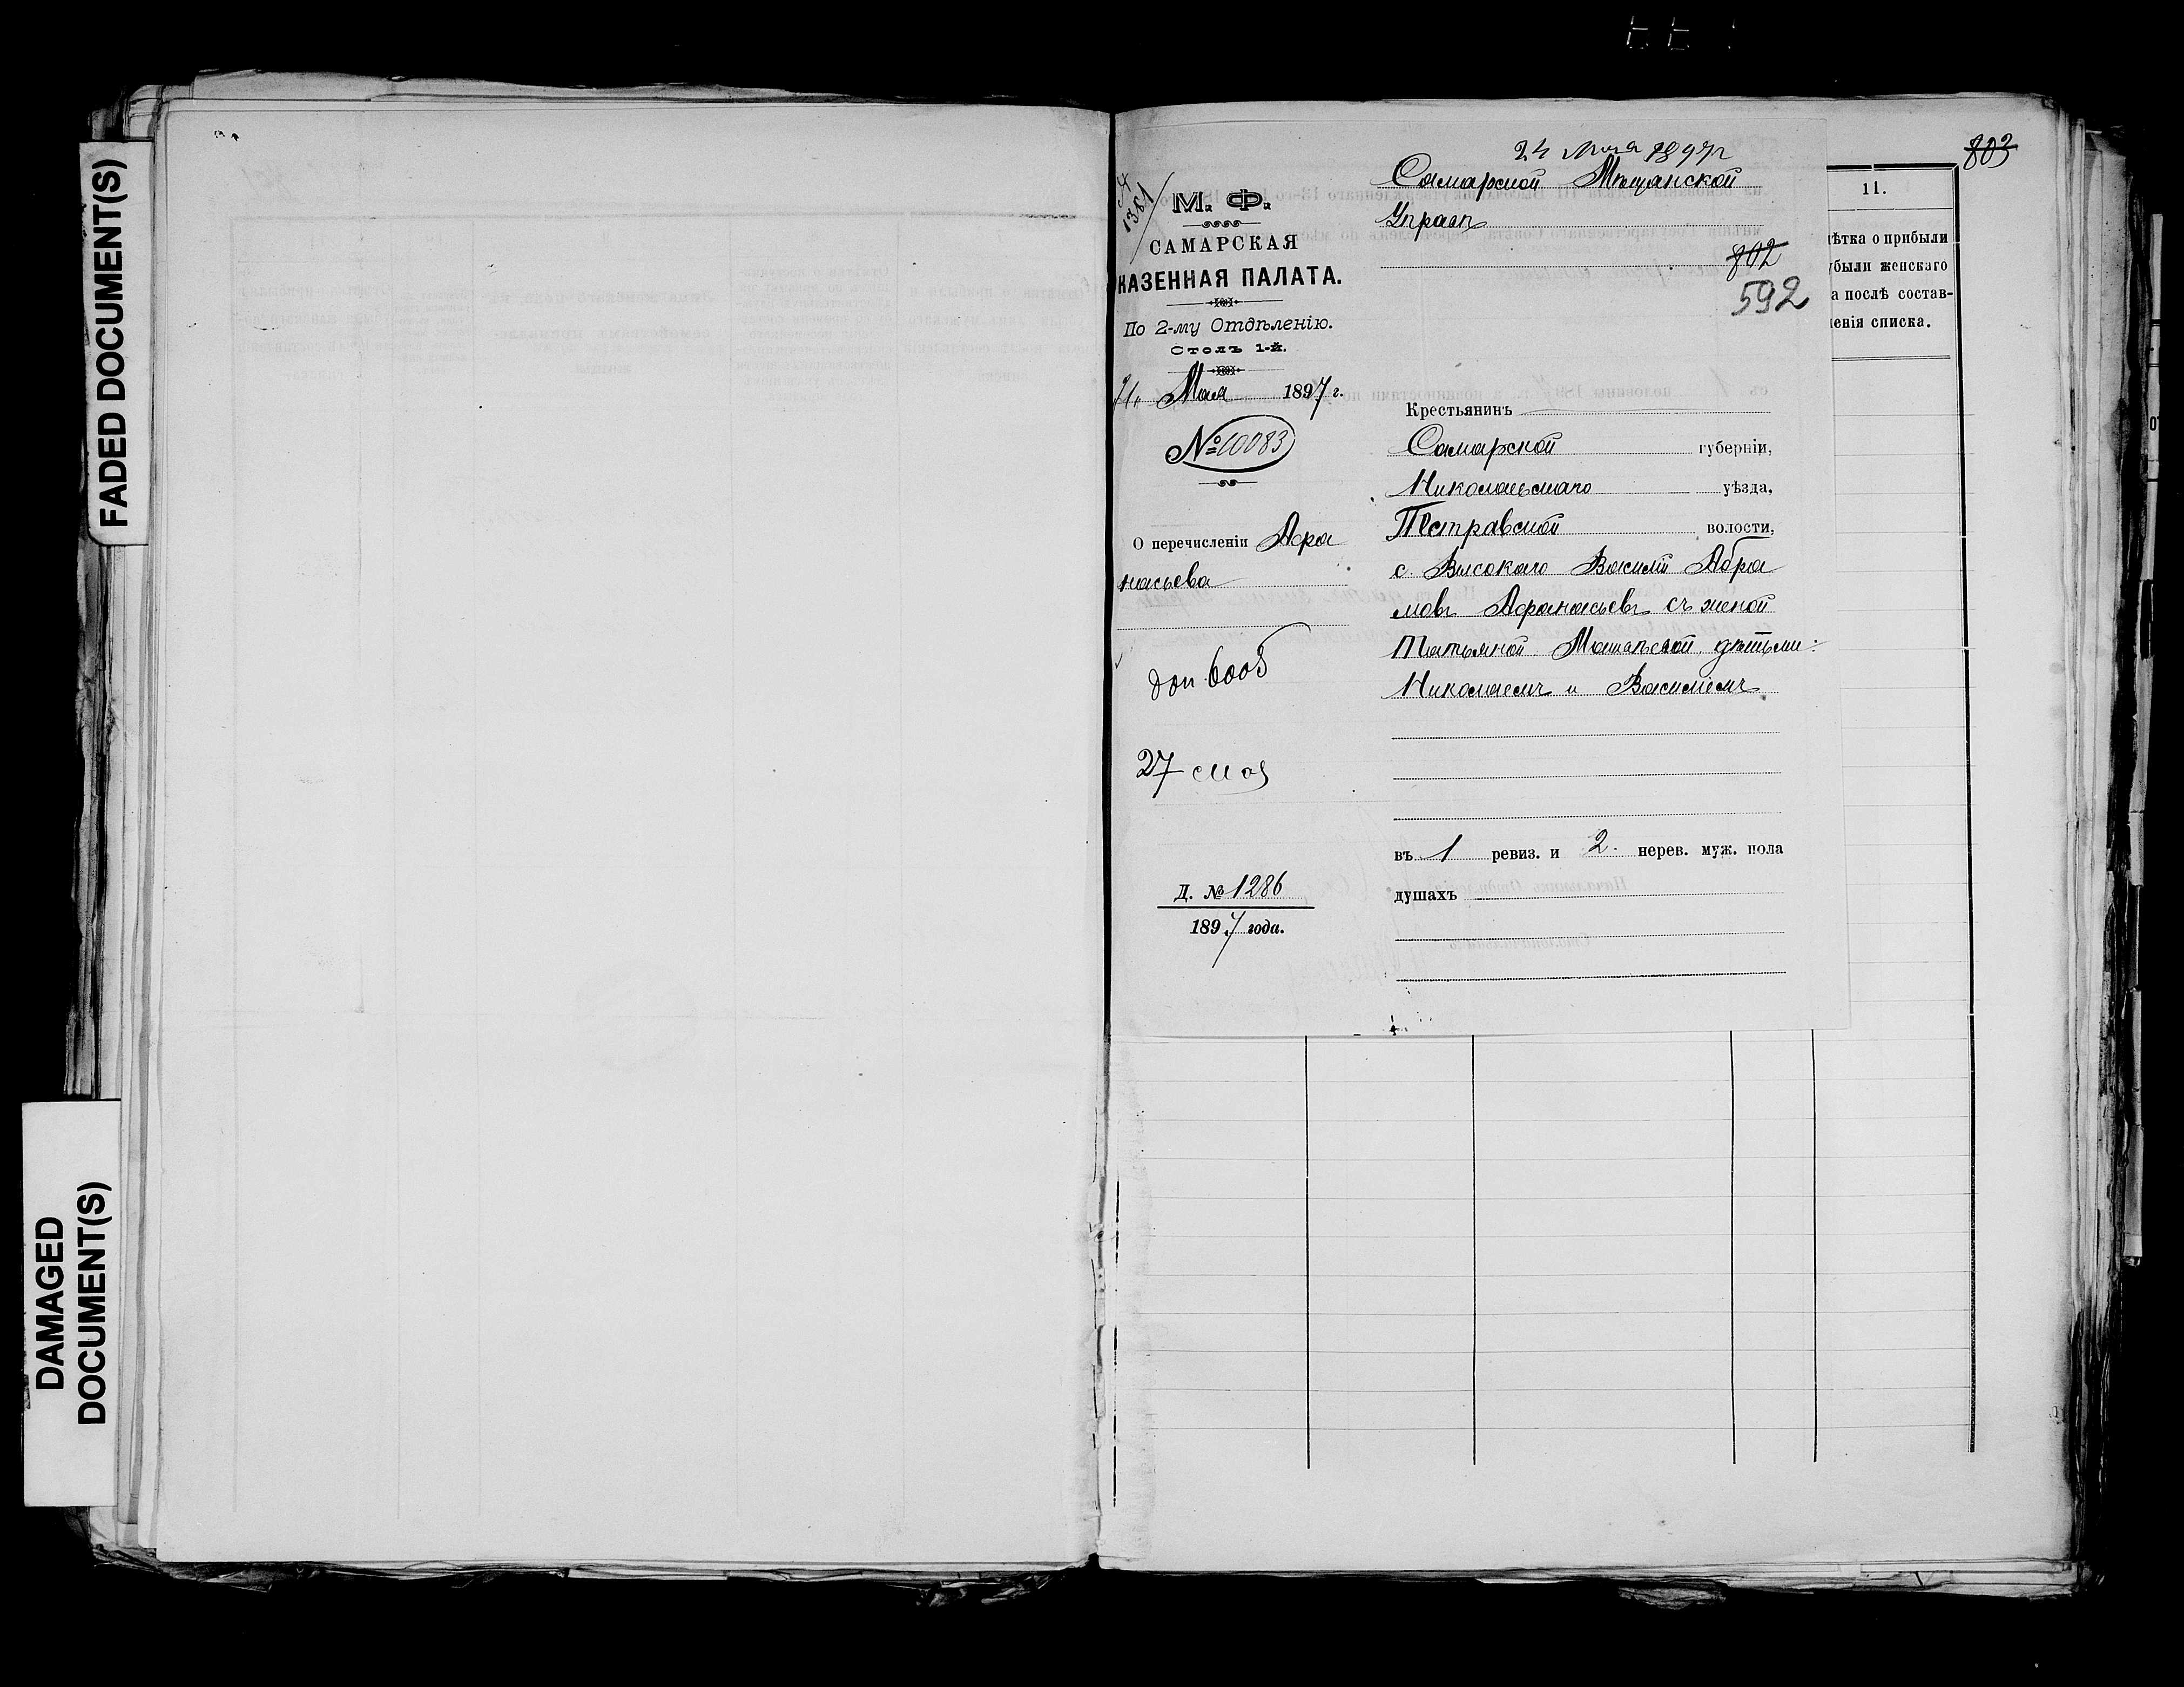 FADED DOCUMENT(S)
DAMAGED
DOCUMENT(S)
803
24 Мая 1897 г
1381
М. Ф.
САМАРСКАЯ
КАЗЕННАЯ ПАЛАТА.
По 2-му Отдѣленію.
Столъ 1-й.
21 Мая 1897 г.
№ 10083
О перечисленіи Афа
насьева
доп. 6005
27 мая
Д. № 1286
1897 года.
Самарской Мѣщанской
Управѣ
802
592
Крестьянинъ
Самарской губерніи,
Николаевскаго уѣзда,
Петровской волости,
с. Высокаго Василій Абра
мовъ Афанасьевъ съ женой
Татьяной дѣтьми:
Николаемъ и Василіемъ
въ 1 ревиз. и 2. нерев. муж. пола
душахъ
11.
ѣтка о прибыли
были женскаго
а послѣ состав-
енія списка.